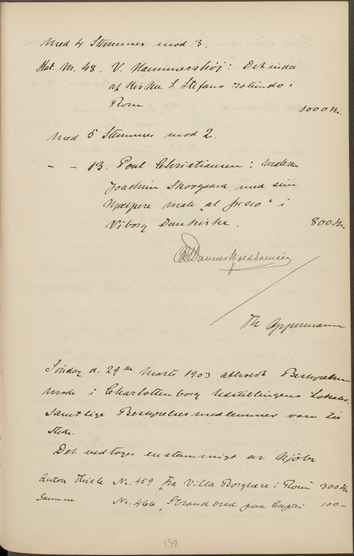 Med 4 Stemmer mod 3.
Kat. Nr. 48. V. Hammershøj: Det indre
af Kirken S. Stefano rotondo i
Rom 1000 Kr.
Med 5 Stemmer mod 2.
- - 83. Poul Christiansen: Maleren
Joachim Skovgaard med sine
Hjælpere male "al fresco" i
Viborg Domkirke. 800 Kr.
Th. Oppermann
Søndag d. 29de Marts 1903 afholdt Bestyrelsen
Møde i Charlottenborg Udstillingens Lokaler,
samtlige Bestyrelsesmedlemmer vare til
Stede.
Det vedtoges enstemmigt at kjøbe
Nr. 459 Fra Villa Borghese i Rom 300 Kr.
Samme Nr. 466 Strandbred paa Capri 100 -